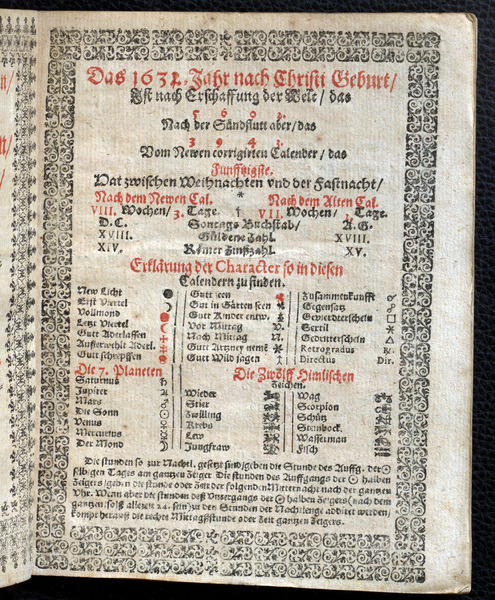 Das 1632. Jahr nach Christi Geburt/
Ist nach Erschaffung der Welt/ das
5 6 0 2.
Nach der Sündflutt aber/ das
3 9 4 3.
Vom Newen corrigirten Calender/ das
Funfftzigste.
Hat zwischen Weihnachten vnd der Fastnacht/
Nach dem Newen Cal. * Nach dem Alten Cal.
VIII. Wochen/ 3. Tage. VII. Wochen/ Tage.
D. C. Sontags Buchstab/ A. G.
XVIII. Güldene Zahl. XVIII.
XIV. Römer Zinßzahl. XV.
Erklärung der Character so in diesen
Calendern zu finden.
New Liecht
Erst Viertel
Vollmond
Letzt Viertel
Gutt Aderlassen
Außerwehlt Aderl.
Gutt schrepffen
Gutt seen
Gut in Gärten seen
Gutt Kinder entw.
Vor Mittag V.
Nach Mittag N.
Gutt Artzney nemē
Gutt Wild jagen
Zusammenkunfft ☌
Gegenschein ☍
Gevierdterschein □
Sextil ⚹
Gedritterschein △
Retrogradus
Directus Dir.
Die 7. Planeten
Saturnus ♄
Jupiter ♃
Mars ♂
Die Sonn ☉
Venus ♀
Mercurius ☿
Der Mond ☽
Die Zwölff Himlischen
Zeichen.
Wieder
Stier
Zwilling
Krebs
Lew
Jungfraw
Wag
Scorpion
Schütz
Steinbock
Wasserman
Fisch
Die stunden so zur Nachtl. gesetzt sind/ geben die Stunde des Auffg. der ☉
selbigen Tages am gantzen Zeiger. Die stunden des Auffgangs der ☉ halben
Zeigers/ geben die stunde oder Zeit der folgenden Mitternacht nach der gantzen
Vhr. Wenn aber die stunden deß Vntergangs der ☉ halben Zeigers (nach dem
gantzen solß allezeit 24. sein) zu den Stunden der Nachtlenge addirt werden/
kompt herauß die rechte Mittagßstunde oder Zeit gantzen Zeigers.